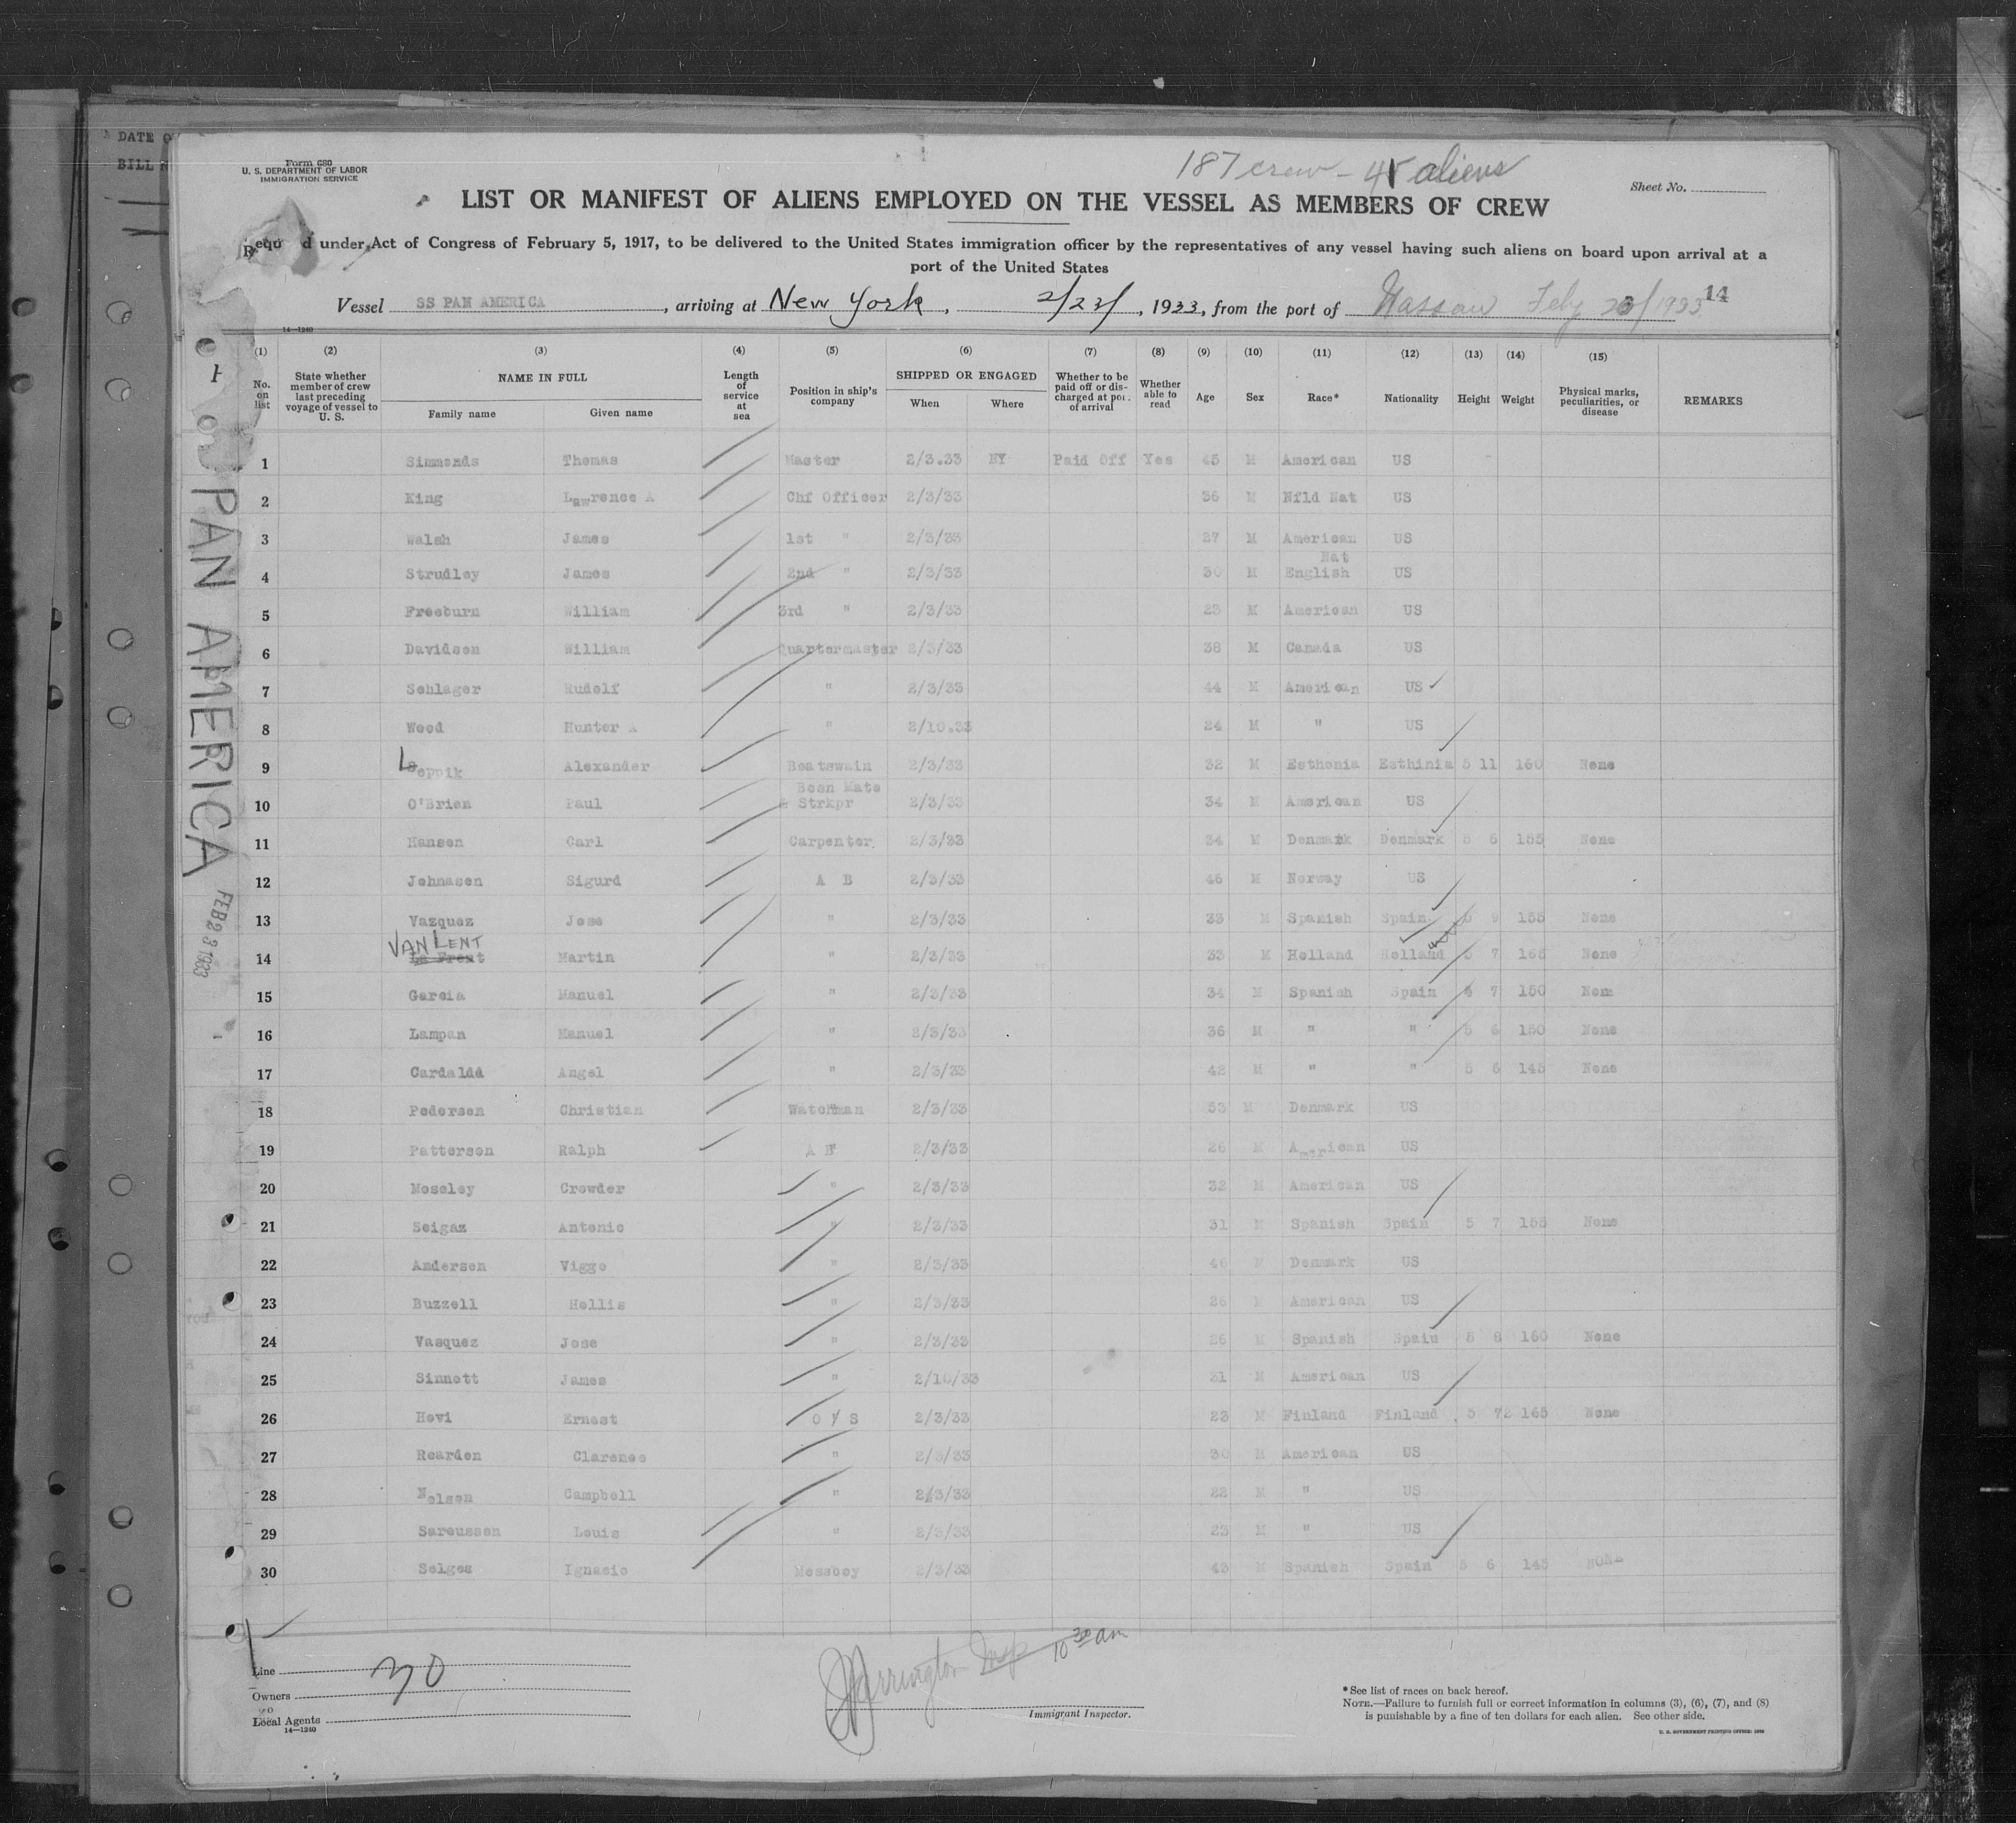 DATE O
BILL N
Form 680
U. S. DEPARTMENT OF LABOR
IMMIGRATION SERVICE
187 crew - aliens
Sheet No.
LIST OR MANIFEST OF ALIENS EMPLOYED ON THE VESSEL AS MEMBERS OF CREW
Requ d under Act of Congress of February 5, 1917, to be delivered to the United States immigration officer by the representatives of any vessel having such aliens on board upon arrival at a
port of the United States
Vessel SS PAN AMERICA, arriving at New York, 2/23/, 1933, from the port of Nassau Feby 20/1933 14
14—1240
(1) (2) (3) (4) (5) (6) (7) (8) (9) (10) (11) (12) (13) (14) (15)
No. on list
State whether member of crew last preceding voyage of vessel to U. S.
NAME IN FULL
Family name Given name
Length of service at sea
Position in ship's company
SHIPPED OR ENGAGED
When Where
Whether to be paid off or discharged at por. of arrival
Whether able to read
Age Sex Race* Nationality Height Weight
Physical marks, peculiarities, or disease
REMARKS
1 Simmonds Thomas Master 2/3.33 NY Paid Off Yes 45 M American US
2 King Lawrence A Chf Officer 2/3/33 36 M Nfld Nat US
3 Walsh James 1st " 2/3/33 27 M American US
4 Strudley James 2nd " 2/3/33 30 M English Nat US
5 Freeburn William 3rd " 2/3/33 23 M American US
6 Davidson William Quartermaster 2/3/33 38 M Canada US
7 Schlager Rudolf " 2/3/33 44 M American US
8 Wood Hunter A " 2/10.33 24 M " US
9 Leppik Alexander Boatswain 2/3/33 32 M Esthonia Esthinia 5 11 160 None
10 O'Brien Paul Bosn Mate & Strkpr 2/3/33 34 M American US
11 Hansen Carl Carpenter 2/3/33 34 M Denmark Denmark 5 6 155 None
12 Johnasen Sigurd A B 2/3/33 46 M Norway US
13 Vazquez Jose " 2/3/33 33 M Spanish Spain 5 9 155 None
VAN LENT
14 La Frent Martin " 2/3/33 33 M Holland Holland 5 7 165 None
15 Garcia Manuel " 2/3/33 34 M Spanish Spain 5 7 150 Non
16 Lampan Manuel " 2/3/33 36 M " " 5 6 150 None
17 Cardaldd Angel " 2/3/33 42 M " " 5 6 145 None
18 Pedersen Christian Watchman 2/3/33 53 M Denmark US
19 Patterson Ralph A B 2/3/33 26 M American US
20 Moseley Crowder " 2/3/33 32 M American US
21 Seigaz Antonio " 2/3/33 31 M Spanish Spain 5 7 155 None
22 Andersen Viggo " 2/3/33 46 M Denmark US
23 Buzzell Hollis " 2/3/33 26 M American US
24 Vasquez Jose " 2/3/33 26 M Spanish Spain 5 8 160 None
25 Sinnott James " 2/10/33 31 M American US
26 Hovi Ernest O / S 2/3/33 23 M Finland Finland 5 72 165 None
27 Rearden Clarence " 2/3/33 30 M American US
28 Nelson Campbell " 2/3/33 22 M " US
29 Sareussen Louis " 2/3/33 23 M " US
30 Selges Ignacio Messboy 2/3/33 43 M Spanish Spain 5 6 145 NONE
PAN AMERICA
FEB 23 1933
Line
30
Owners
Local Agents
14—1240
Harrington Insp 10 30 am
Immigrant Inspector.
*See list of races on back hereof.
NOTE.—Failure to furnish full or correct information in columns (3), (6), (7), and (8)
is punishable by a fine of ten dollars for each alien. See other side.
U. S. GOVERNMENT PRINTING OFFICE: